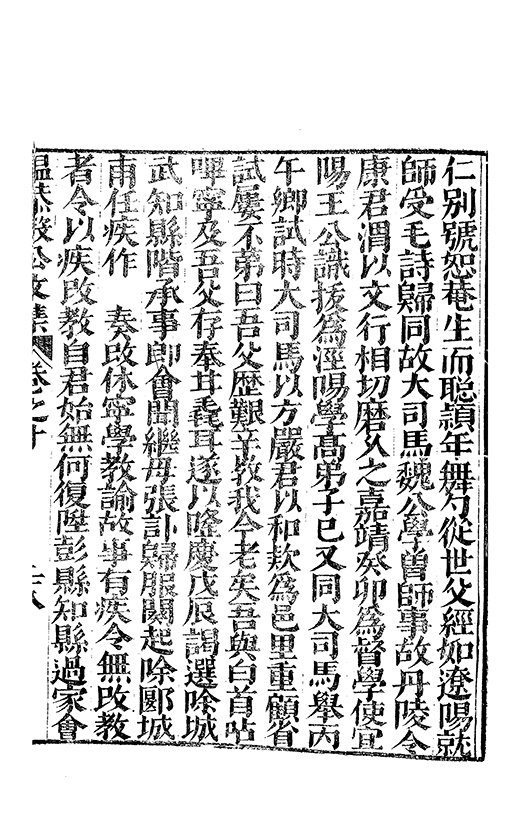 仁別號恕菴生而聰頴年舞勺從世父經如遼陽就
師受毛詩歸同故大司馬魏公學曾師事故丹陵令
康君渭以文行相切磨久之嘉靖癸卯為督學使宜
陽王公識拔為涇陽學高弟子已又同大司馬舉丙
午鄉試時大司馬以方嚴君以和欵為邑里重顧省
試屢不弟曰吾父歷艱辛教我今老矣吾與白首呫
嗶寧及吾父存奉甘毳耳遂以隆慶戊辰謁選唫城
武知縣階承事郎會聞繼母張訃歸服闋起唫郾城
甫任疾作 奏改休寧學教諭故事有疾令無改教
者令以疾改教自君始無何復陞彭縣知縣過家會
溫恭毅公文集 卷之十 六八